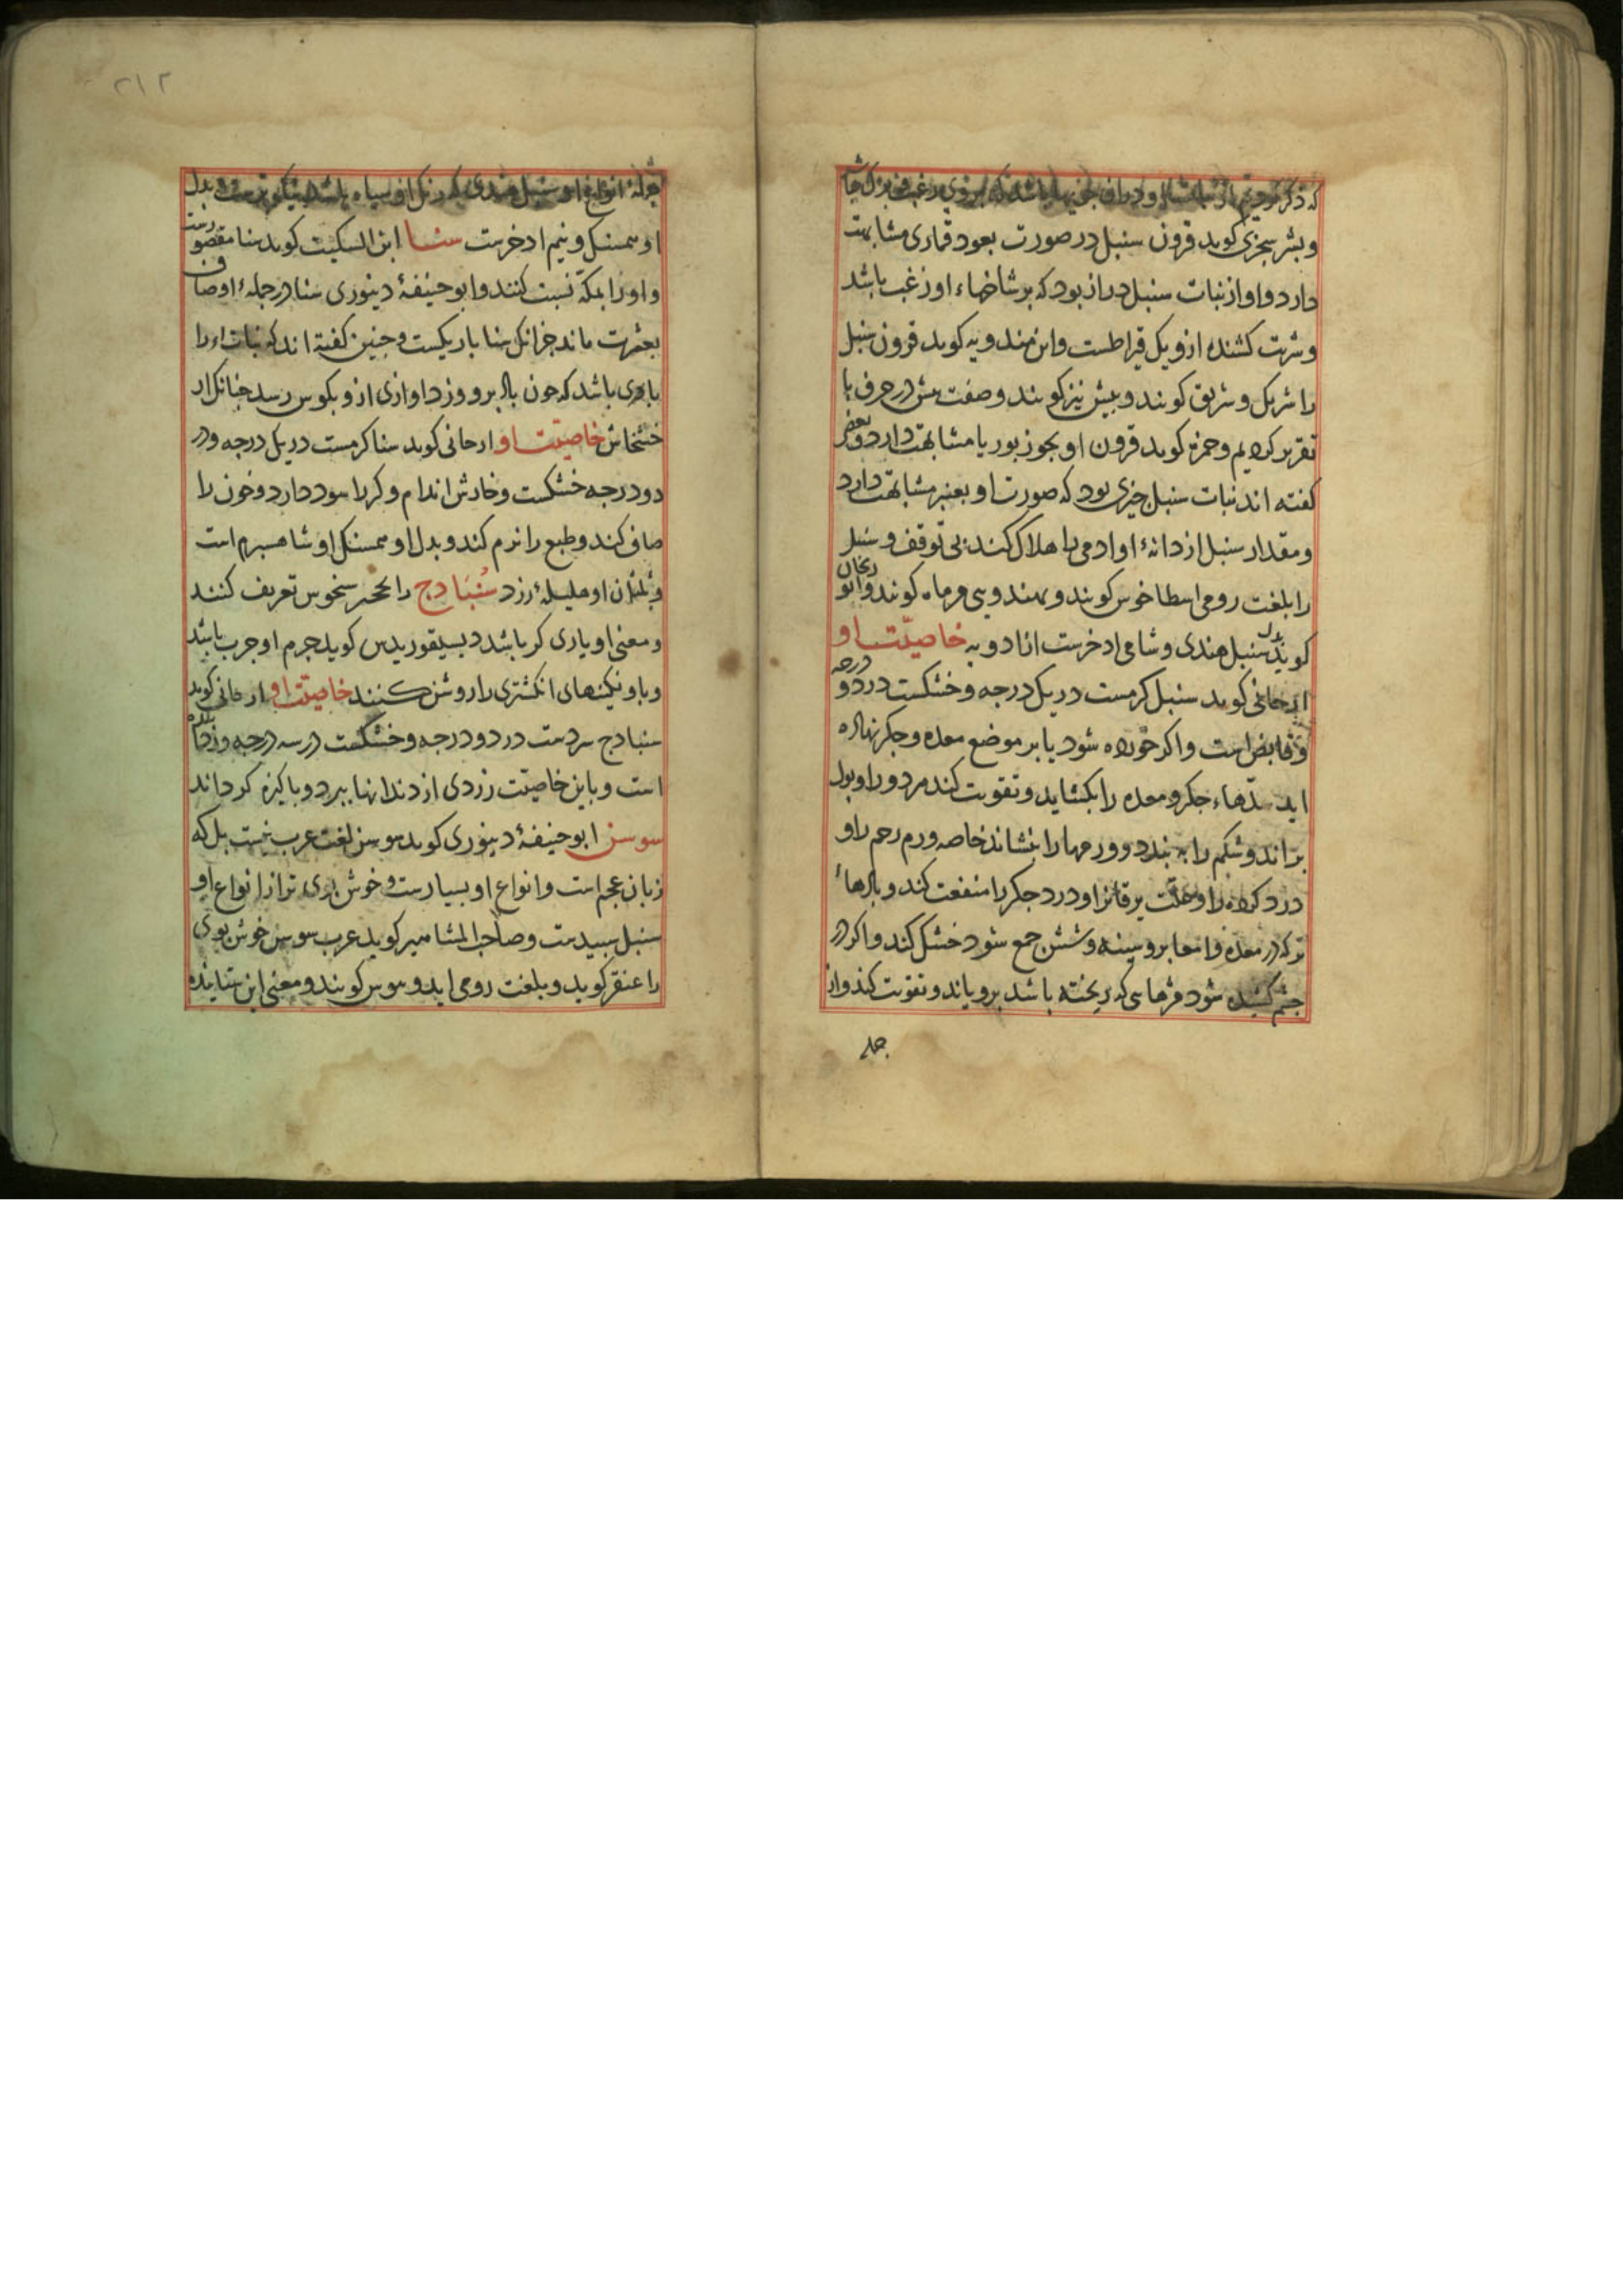 وبشر سجزی کوید قرون سنبل در صورت بعود قماری مشابهت
دارد و او از نبات سنبل دراز بود که بر شاخهاء او زغب باشد
وشربت کشنده ازو یک قیراطست وابن مندویه کوید قرون سنبل
را شربک و شریق کویند و بیش نیز کویند وصفت بیش در حرف با
تقریر کردیم وحمزه کوید قرون او بجوز بوریا مشابهت دارد وبعضی
کفته اند نبات سنبل چیزی بود که صورت او بعنبر مشابهت دارد
ومقدار سنبل از دانهٔ او ادمی را هلاک کند بی توقف وسنبل
را بلغت رومی اسطاخوس کویند و بهندوی فرماه کویند
کویند بدل سنبل هندی وشامی ادخرست خاصیّت او
ارجانی کوید سنبل کرمست در یک درجه وخشکست در دو درجه
وقابض است واکر خورده شود یا بر موضع معده وجکر نهاده
اید سدهاء جکر ومعده را بکشاید وتقویت کند هر دو را وبول
براند وشکم را به بندد وورمها را بنشاند خاصه ورم رحم را و
درد کرده را وعلت یرقانرا ودرد جکر را منفعت کند
تر که در معده وامعا بر وسینه وشش جمع شود خشک کند واکر در
چشم کشیده شود مژهایی که ریخته باشد برویاند وتقویت کند واز
جمله
۲۱۲
جملهٔ انواع او سنبل هندی که رنک او سیاه باشد نیکوترست وبدل
او همسنک ونیم ادخرست سنا ابن السکیت کوید سنا مقصورست
واورا بمکّه نسبت کنند وابو حنیفهٔ دینوری سنا در جملهٔ اوصاف
بعشرت ماند جزانک سنا باریکست وچنین کفته اند که نبات او را
باری باشد که چون باد برو وزد اوازی ازو بکوش رسد چنانک از
خشخاش خاصیّت او ارجانی کوید سنا کرمست در یک درجه ودر
دو درجه خشکست وخارش اندام وکر را سود دارد وخون را
صافی کند وطبع را نرم کند وبدل او همسنک او شاهسبرم است
او هلیلهٔ زرد سُنبَادج را بحجر سخوس تعریف کنند
ومعنی او یاری کر باشد دیسیقوریدس کوید جرم او چرب باشد
وباو نکینهای انکشتری را روشن کنند خاصیّت او ارجانی کوید
سنبادج سردست در دو درجه وخشکست در سه درجه
است وباین خاصیّت زردی از دندانها ببرد وپاکیزه کرداند
سوسن ابو حنیفهٔ دینوری کوید سوسن لغت عرب نیست بل که
زبان عجم است وانواع او بسیارست وخوش بوی تر از انواع او
سنبل سپیدست وصاحب المشاهیر کوید عرب سوسن خوش بوی
را عنقر کوید وبلغت رومی ایدوسوس کویند ومعنی این ستاینده